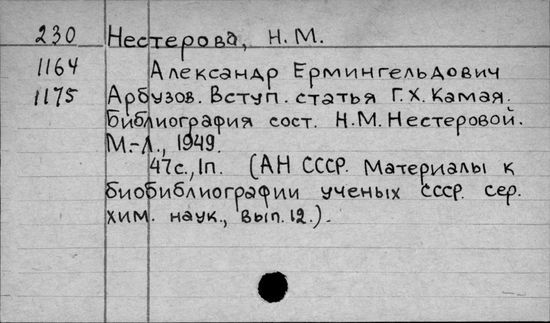 230 Нестерова, Н.М.
1164 Александр Ермингельдович
1175 Арбузов. Вступ. статья Г.Х. Камая.
Библиография сост. Н.М. Нестеровой.
М.-Л., 1949.
47с., 1п. (АН СССР. Материалы к
биобиблиографии ученых СССР. Сер.
хим. наук., вып. 12.).